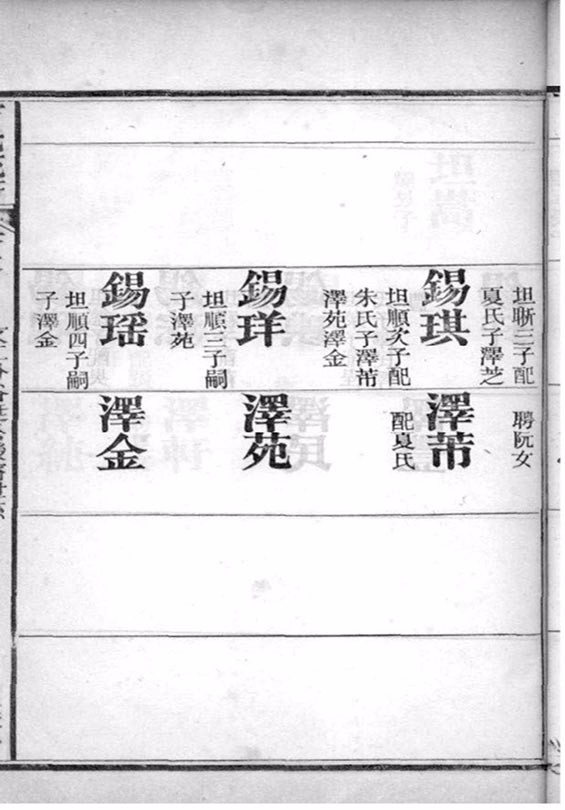 坦聨二子配
夏氏子澤芝
錫琪
坦順次子配
朱氏子澤芾
澤苑澤金
錫珜
坦順三子嗣
子澤苑
錫瑶
坦順四子嗣
子澤金
聘阮女
澤芾
配夏氏
澤苑
澤金